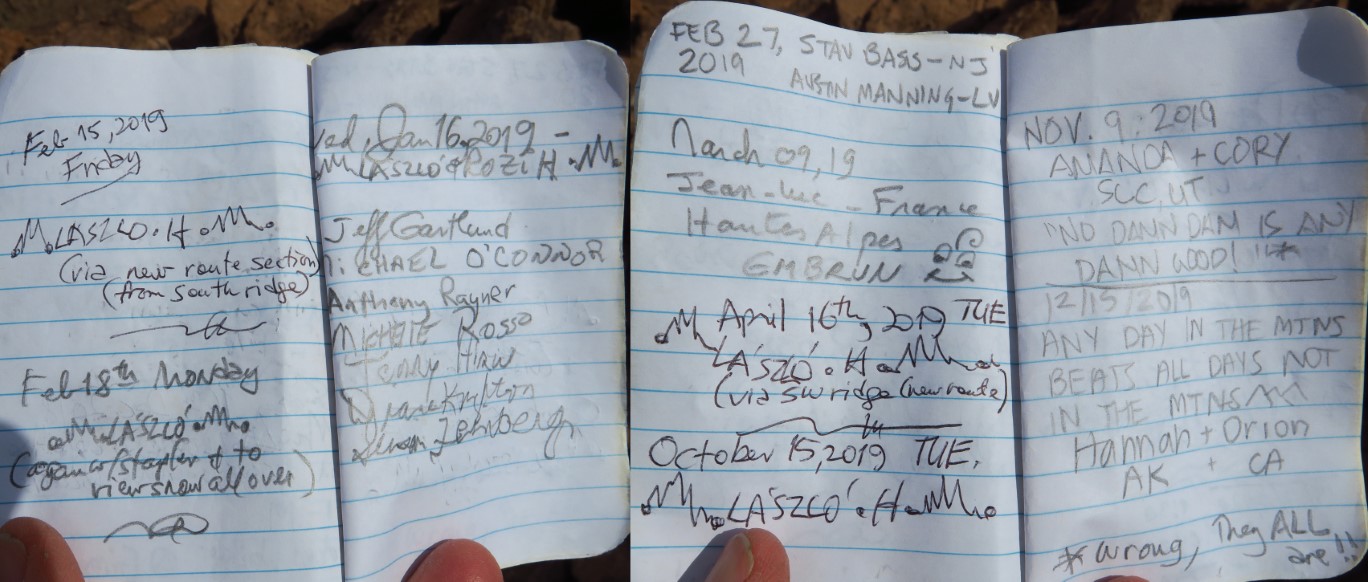 Feb 15, 2019
Friday
LÁSZLÓ • H •
(via new route section)
(from south ridge)
Feb 18th Monday
LÁSZLÓ
(again w/stapler & to
view snow all over)
Wed, Jan 16, 2019 -
LÁSZLÓ & ROZI H •
Jeff Gartlund
MICHAEL O'CONNOR
Anthony Rayner
MICHELE ROSSO
FEB 27, STAV BASS - NJ
2019 AUSTIN MANNING - LV
March 09, 19
Jean-Luc - France
Hautes Alpes
EMBRUN
April 16th, 2019 TUE
LÁSZLÓ • H •
(via SW ridge (new route)
October 15, 2019 TUE.
LÁSZLÓ • H •
NOV. 9. 2019
AMANDA + CORY
SCC, UT
"NO DANN DAM IS ANY
DANN WOOD! "*
12/15/2019
ANY DAY IN THE MTNS
BEATS ALL DAYS NOT
IN THE MTNS
Hannah + Orion
AK + CA
* Wrong, They ALL
are!!